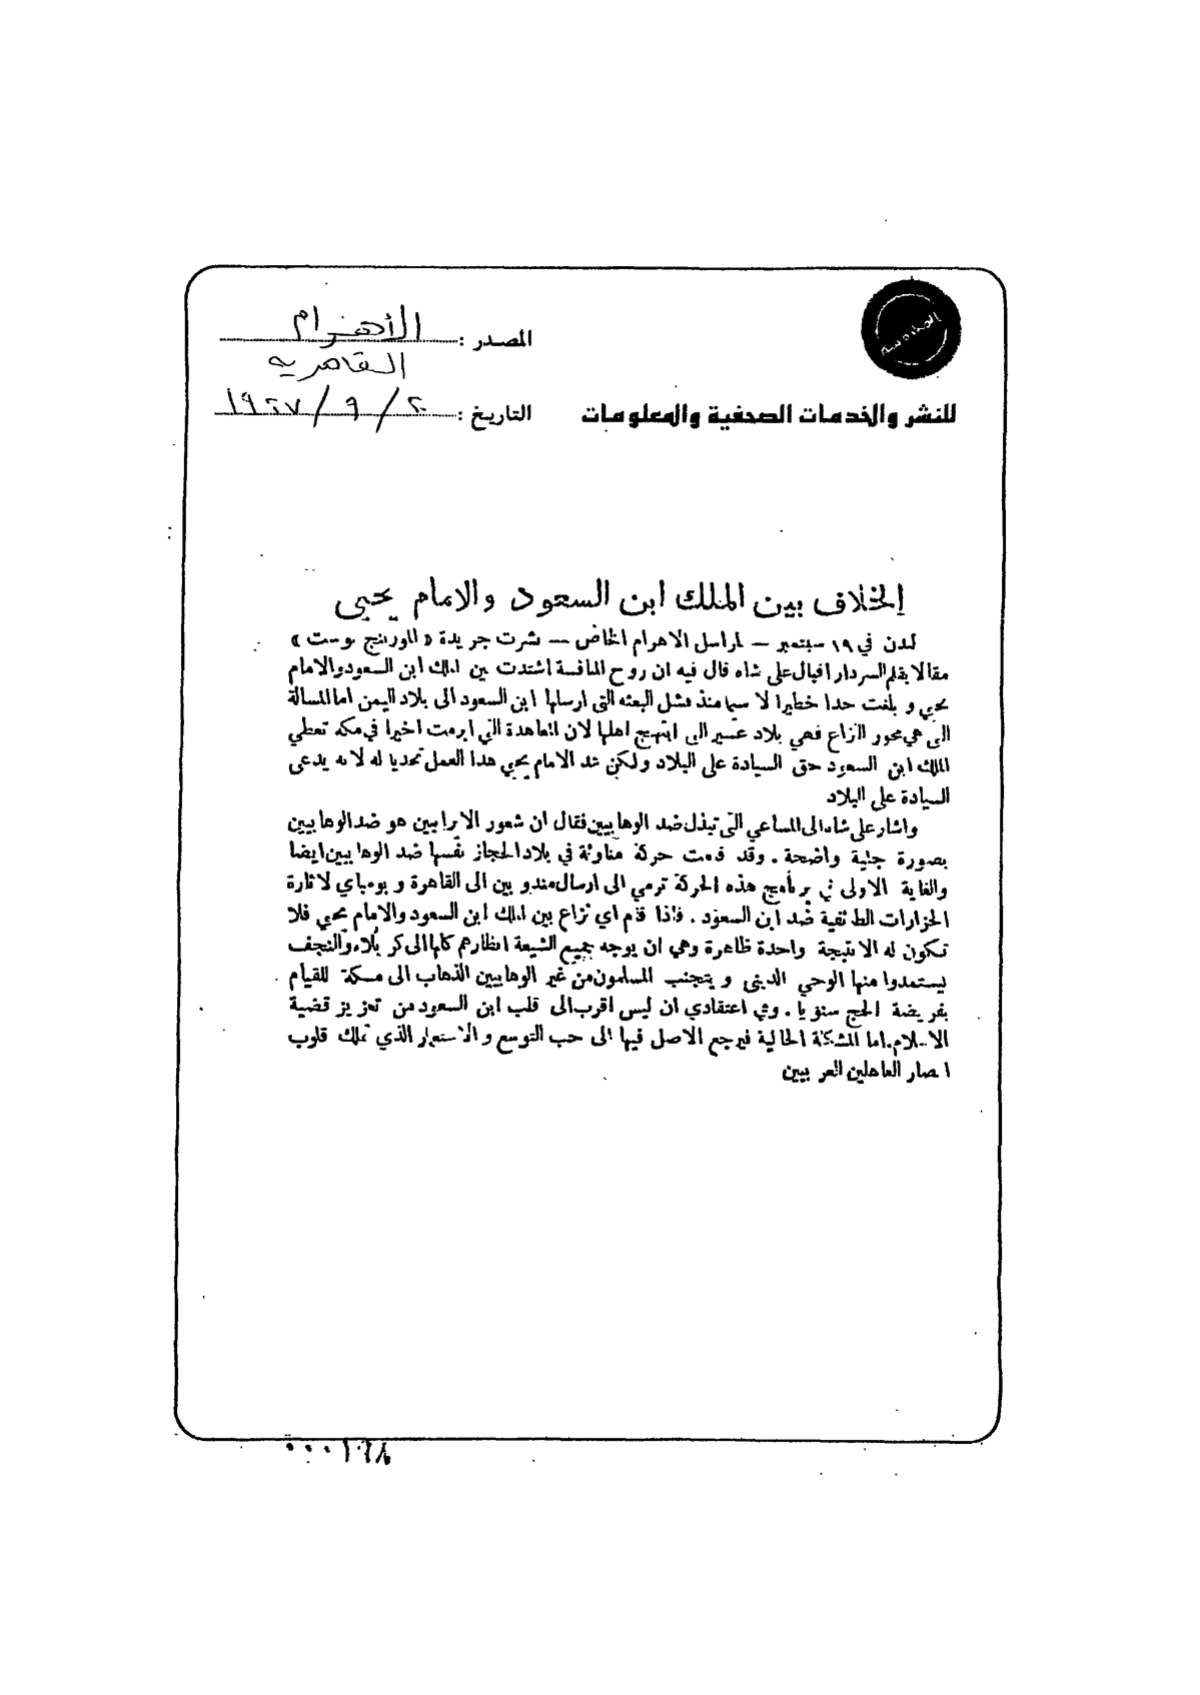 المصدر : الأهرام
القاهرية
للنشر والخدمات الصحفية والمعلومات
التاريخ : ٢٠ / ٩ / ١٩٢٧
الخلاف بين الملك ابن السعود والامام يحيى
لندن في ١٩ سبتمبر — لمراسل الاهرام الخاص — نشرت جريدة « المورننج بوست »
مقالا بقلم السردار اقبال على شاه قال فيه ان روح المنافسة اشتدت بين الملك ابن السعود والامام
يحيي و بلغت حدا خطيرا لا سيما منذ فشل البعثه التى ارسلها ابن السعود الى بلاد اليمن اما المسالة
التي هي محور النزاع فهي بلاد عسير التى ابتهج اهلها لان المعاهدة التي ابرمت اخيرا في مكه تعطي
الملك ابن السعود حق السيادة على البلاد ولكن عد الامام يحيي هذا العمل تحديا له لانه يدعى
السيادة على البلاد
واشار على شاه الى المساعي التى تبذل ضد الوهابيين فقال ان شعور الايرانيين هو ضد الوهابيين
بصورة جلية واضحة . وقد قامت حركة مناوئة في بلاد الحجاز نفسها ضد الوهابيين ايضا
والغاية الاولى في برنامج هذه الحركة ترمي الى ارسال مندوبين الى القاهرة و بومباي لاثارة
الحزازات الطائفية ضد ابن السعود . فاذا قام اي نزاع بين الملك ابن السعود والامام يحيي فلا
تكون له الا نتيجة واحدة ظاهرة وهي ان يوجه جميع الشيعة انظارهم كلها الى كربلاء والنجف
ليستمدوا منها الوحي الدينى و يتجنب المسلمون من غير الوهابيين الذهاب الى مكة للقيام
بفريضة الحج سنويا . وفي اعتقادي ان ليس اقرب الى قلب ابن السعود من تعزيز قضية
الاسلام. اما المشكلة الحالية فيرجع الاصل فيها الى حب التوسع والاستعمار الذي تملك قلوب
انصار العاهلين العربيين